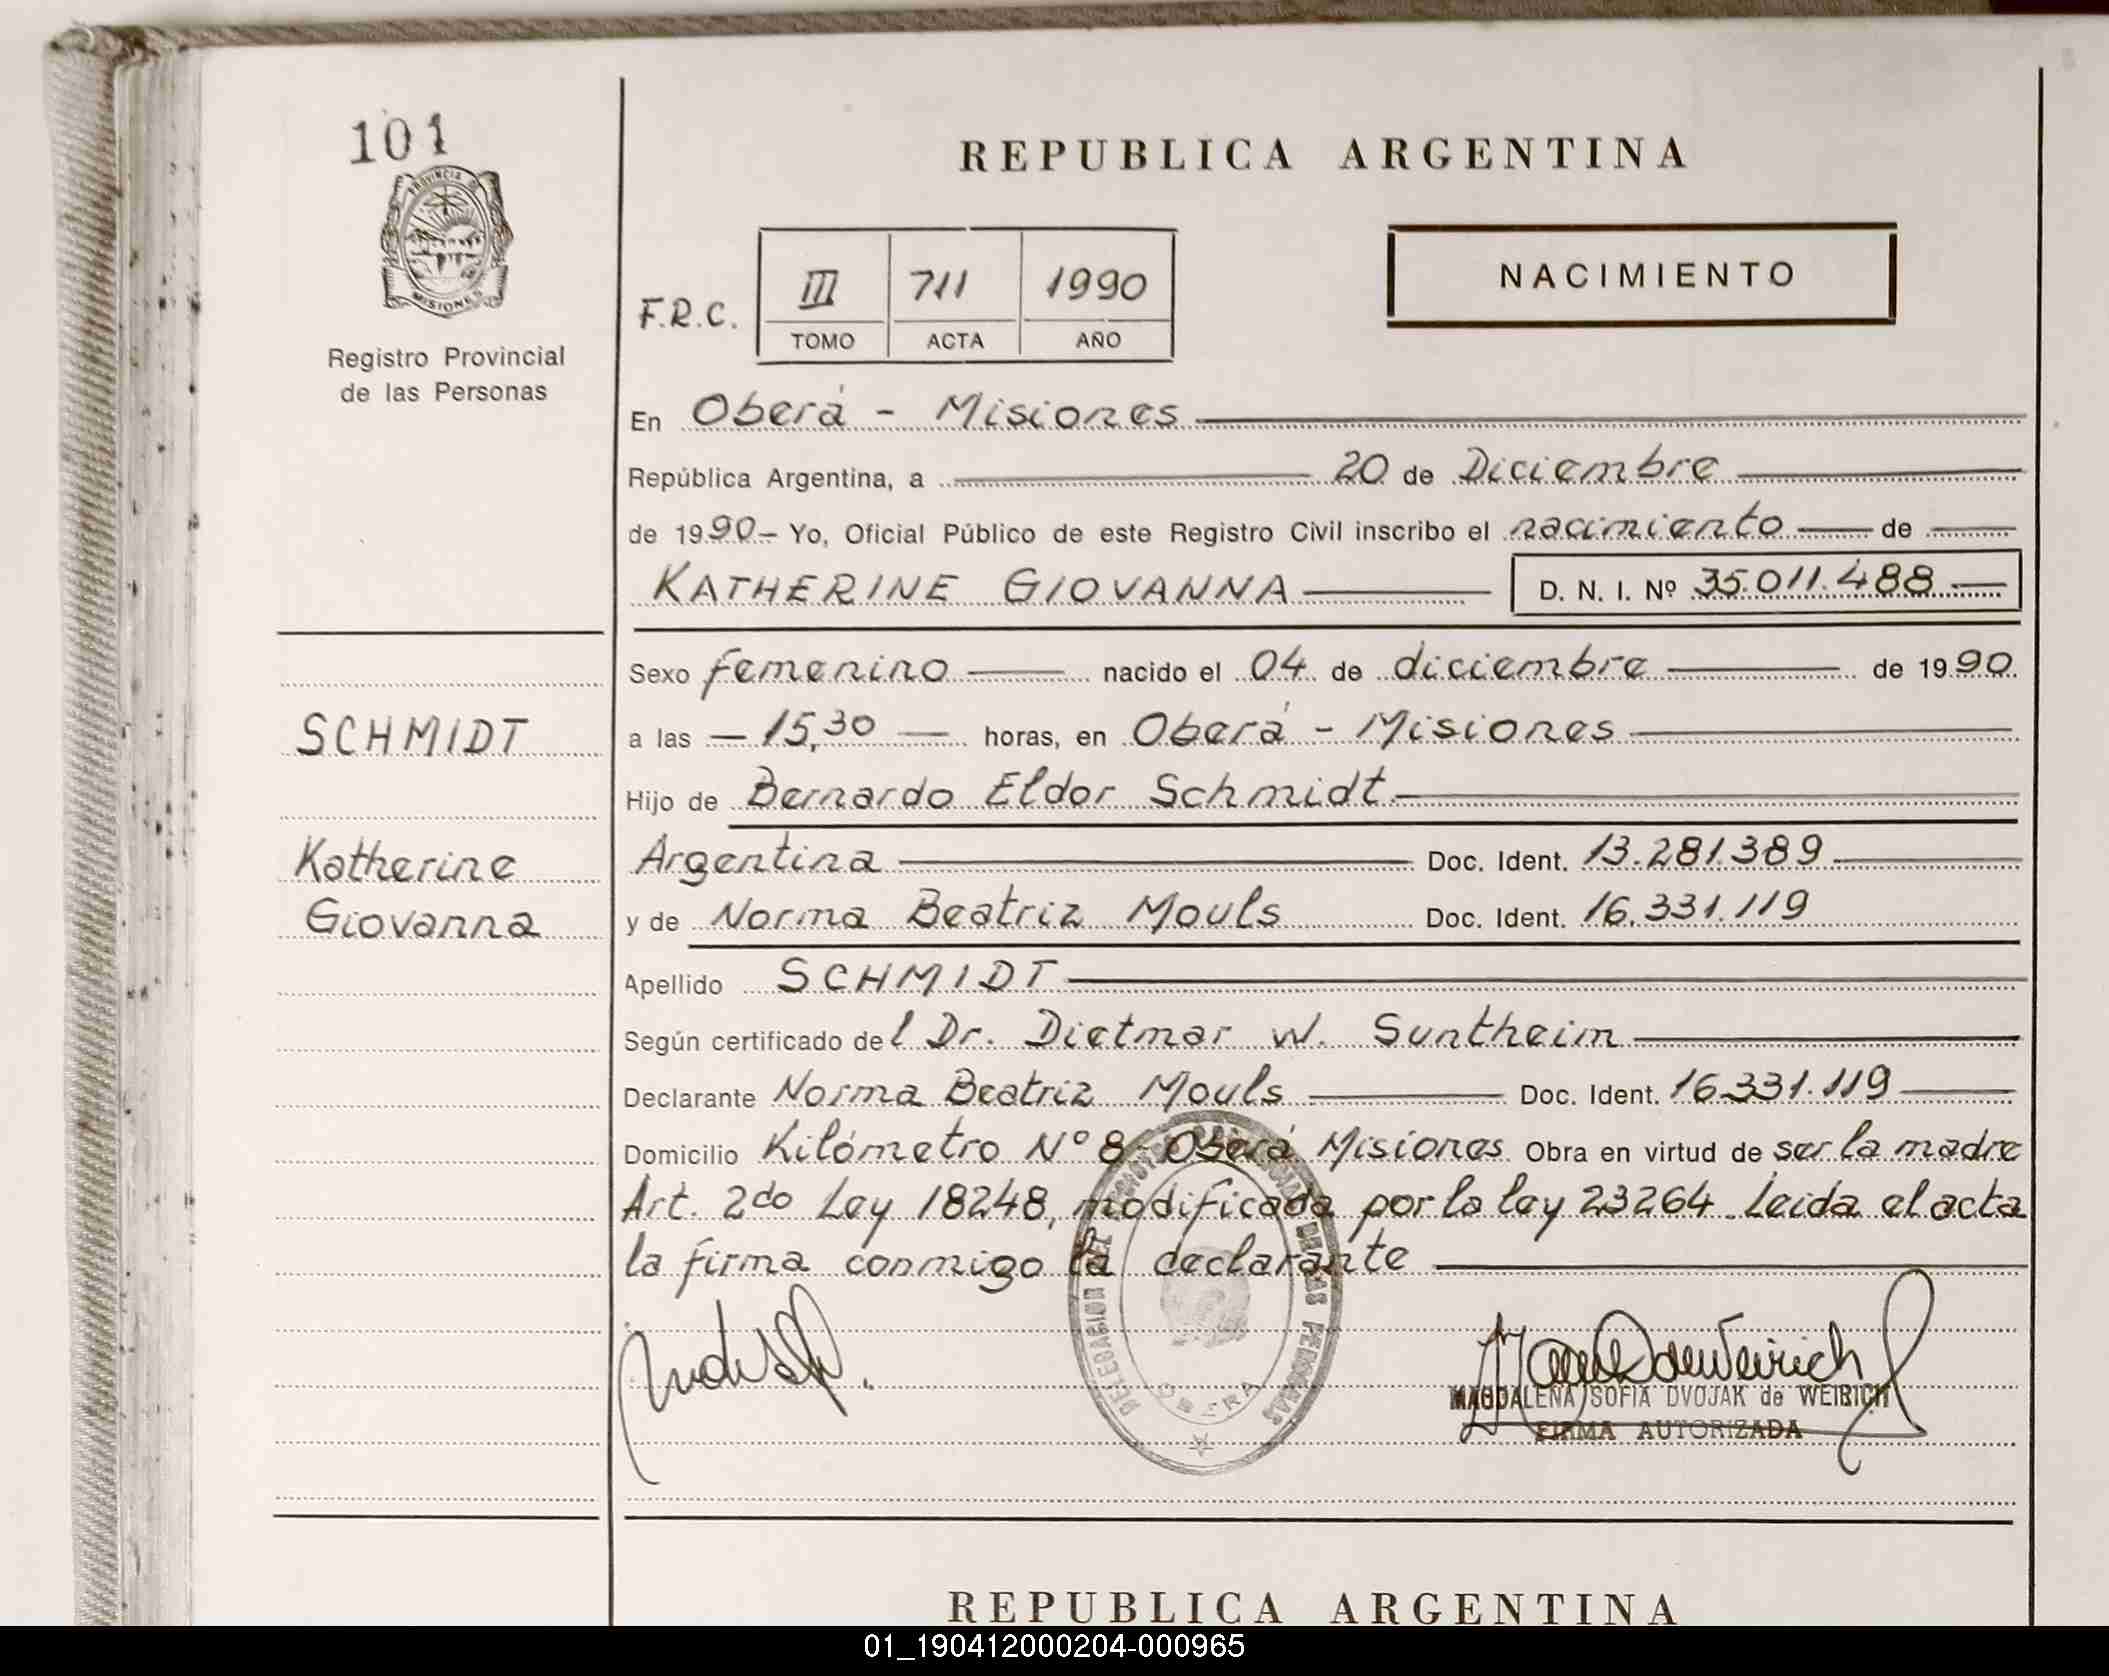 101
PROVINCIA DE
MISIONES
Registro Provincial
de las Personas
REPUBLICA ARGENTINA
NACIMIENTO
F.R.C.
III 711 1990
TOMO ACTA AÑO
En Oberá - Misiones
República Argentina, a 20 de Diciembre
de 1990 - Yo, Oficial Público de este Registro Civil inscribo el nacimiento de
KATHERINE GIOVANNA D. N. I. Nº 35.011.488
Sexo femenino nacido el 04 de diciembre de 1990
a las 15,30 horas, en Oberá - Misiones
Hijo de Bernardo Eldor Schmidt
Argentina Doc. Ident. 13.281.389
y de Norma Beatriz Mouls Doc. Ident. 16.331.119
Apellido SCHMIDT
Según certificado del Dr. Dietmar W. Suntheim
Declarante Norma Beatriz Mouls Doc. Ident. 16.331.119
Domicilio Kilómetro Nº 8 - Oberá Misiones Obra en virtud de ser la madre
Art. 2do Ley 18248, modificada por la ley 23264. Leida el acta
la firma conmigo la declarante
SCHMIDT
Katherine
Giovanna
DELEGACION DEL REGISTRO PROVINCIAL DE LAS PERSONAS
OBERA
MAGDALENA SOFIA DVOJAK de WEIRICH
FIRMA AUTORIZADA
REPUBLICA ARGENTINA
01_190412000204-000965